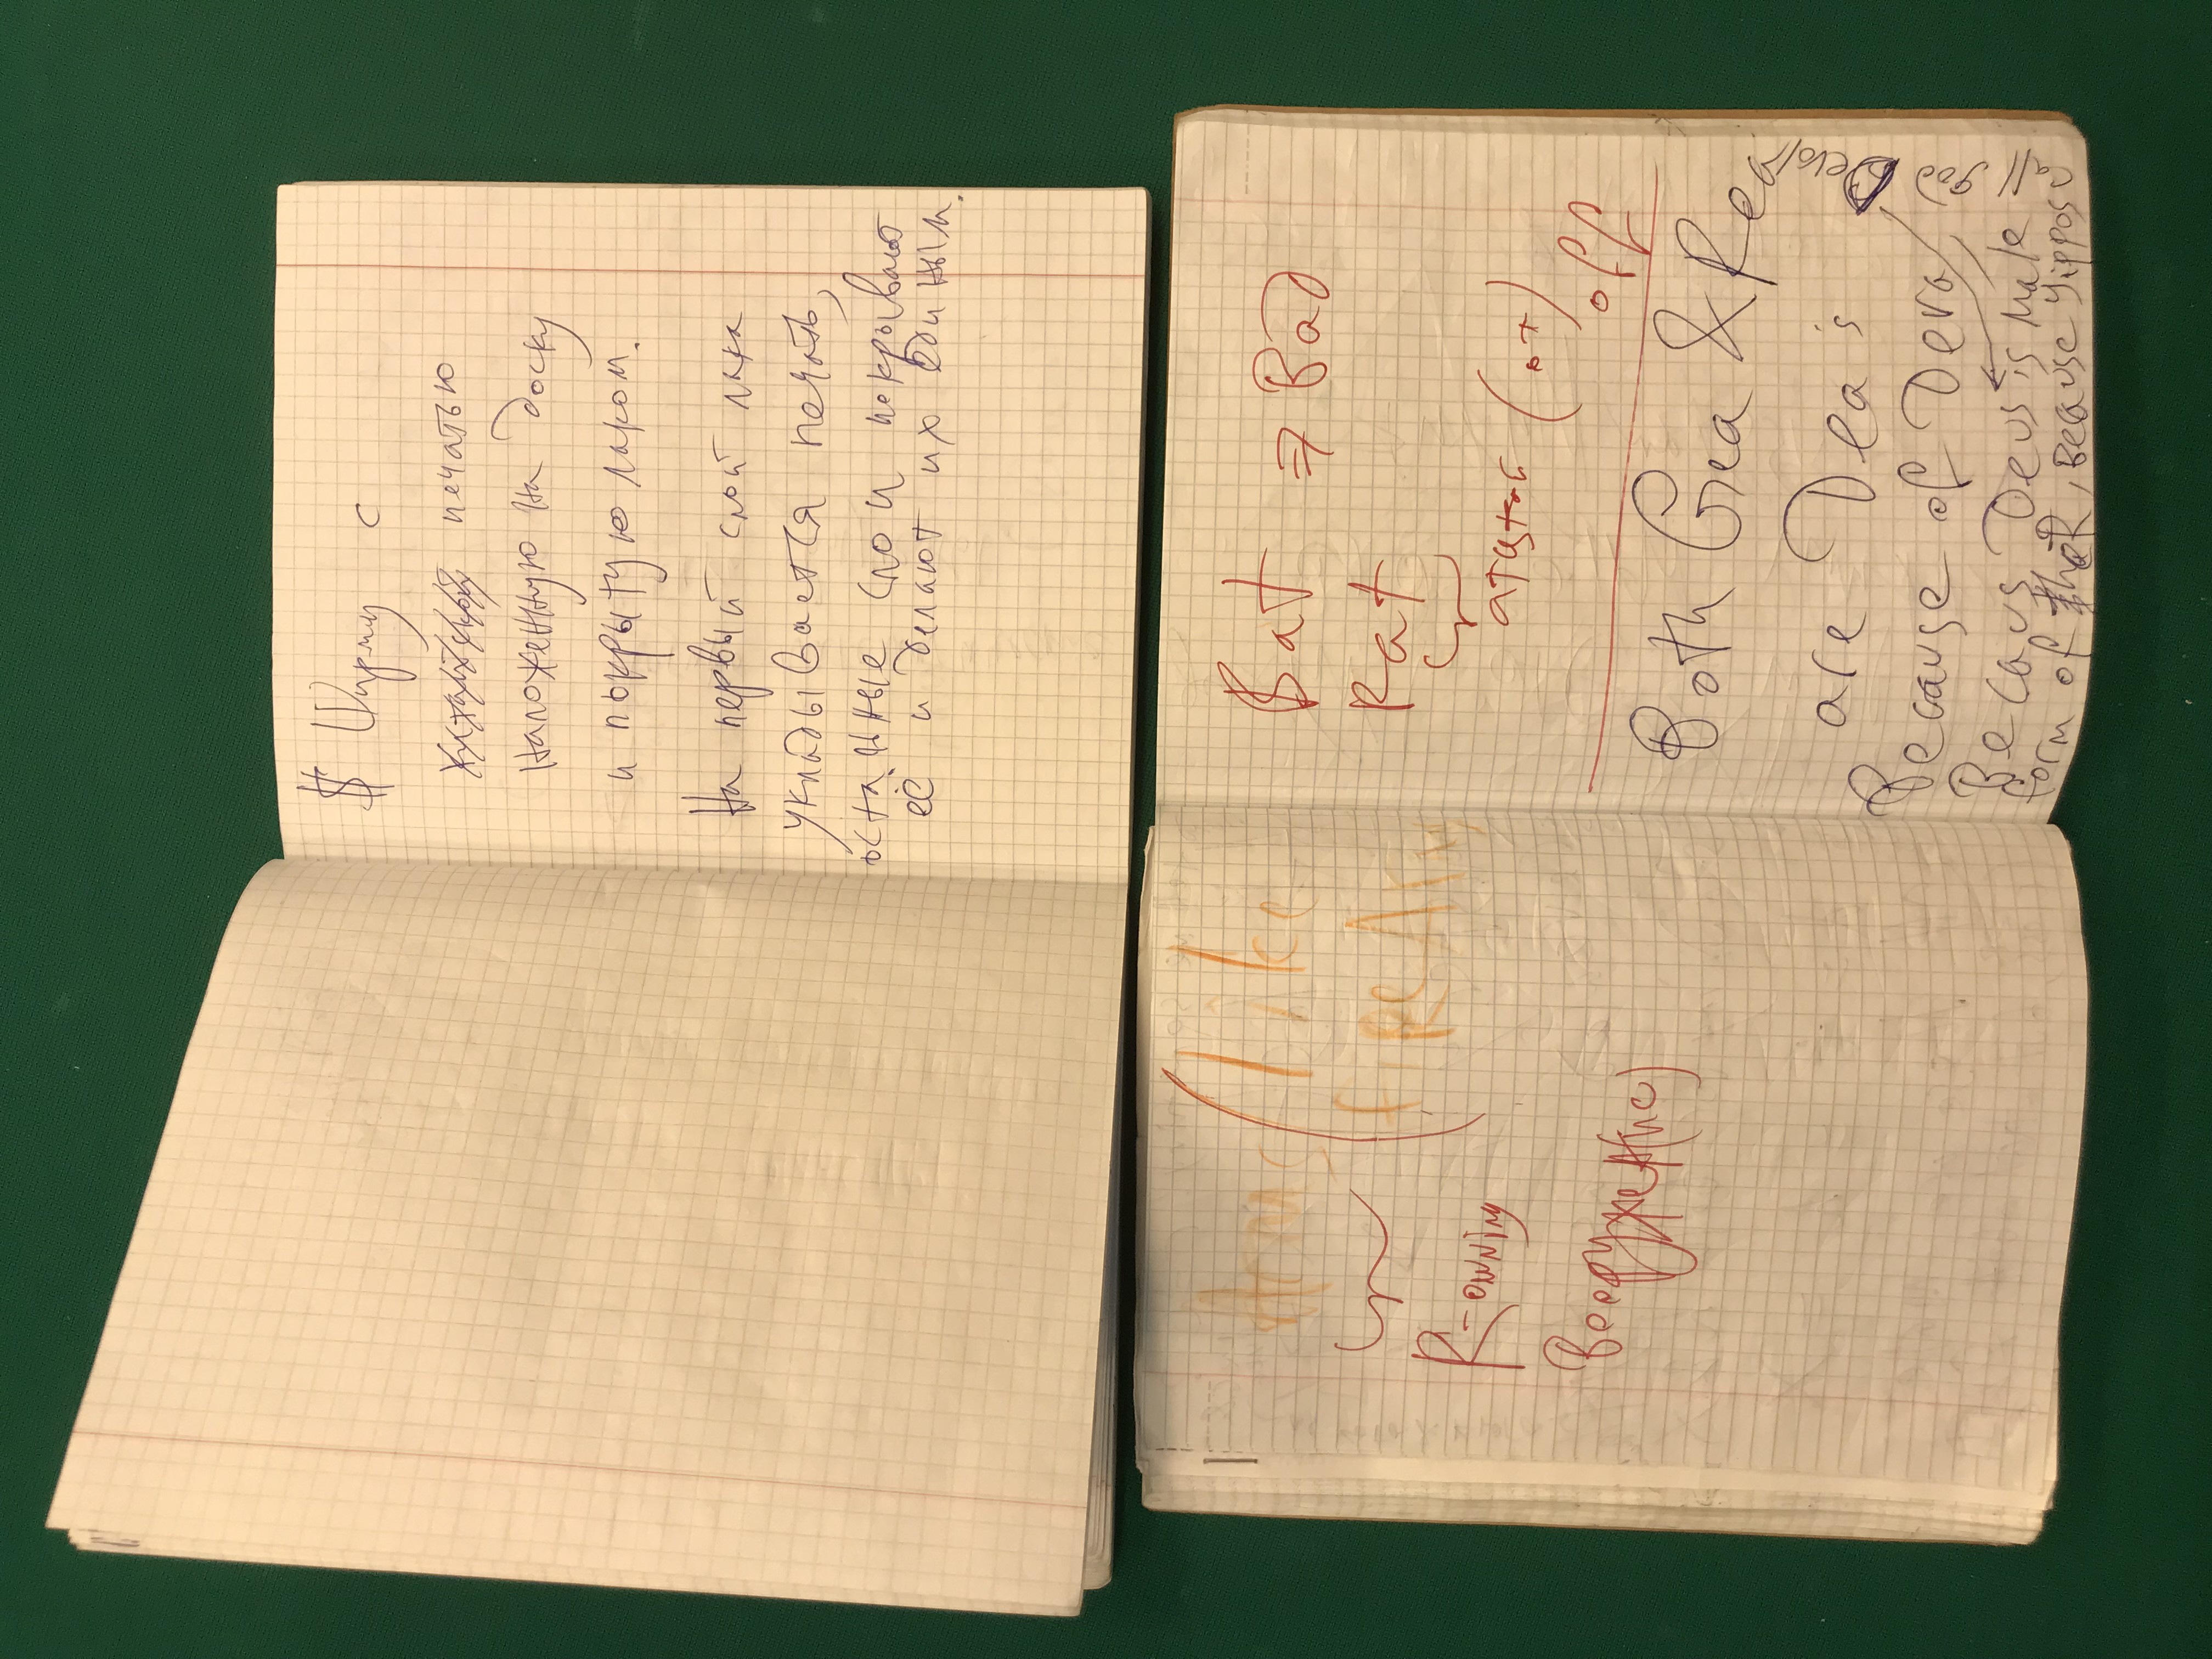 $ Ширму с
китайской печатью
наложенную на доску
и покрытую лаком.
На первый слой лака
укладывается печать,
остальные слои покрывают
её и делают их единым.
Arms (like
fire Arm
R-owning
Вооружен(ие)
Bat => Bad
Rat
(от)
off
Both Gea & Rea
are Dea's
Because of Deva
Becaus Deus is male
form of theR, Because gippos
call god Devolt